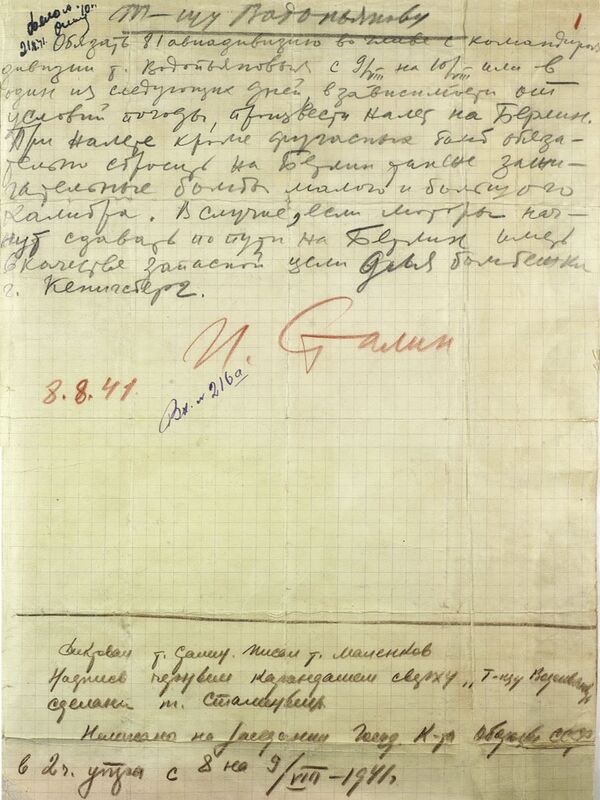 Т-щу Водопьянову
1
Обязать 81 авиадивизию во главе с командиром
дивизии т. Водопьяновым с 9/VIII на 10/VIII или в
один из следующих дней, в зависимости от
условий погоды, произвести налет на Берлин.
При налете кроме фугасных бомб обяза-
тельно сбросить на Берлин также зажи-
гательные бомбы малого и большого
калибра. В случае, если моторы нач-
нут сдавать по пути на Берлин иметь
в качестве запасной цели для бомбежки
г. Кенигсберг.
И. Сталин
8.8.41
Вх. № 216а
Диктовал т. Сталин. Писал т. Маленков
Надпись черным карандашем сверху „Т-щу Водопьянову
сделана т. Сталиным
Написано на заседании Госуд. К-та Обороны СССР
в 2 ч. утра с 8 на 9/VIII–1941г.